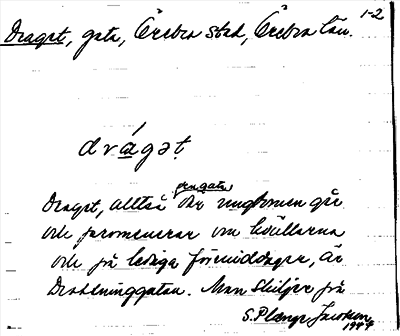 1-2
Draget, gata, Örebro stad, Örebro län.
drágət
Draget, alltså den gata där ungdomen går
och promenerar om kvällarna
och på lediga förmiddagar, är
Drottninggatan. Man skiljer på
S. Plænge Jacobson
1944